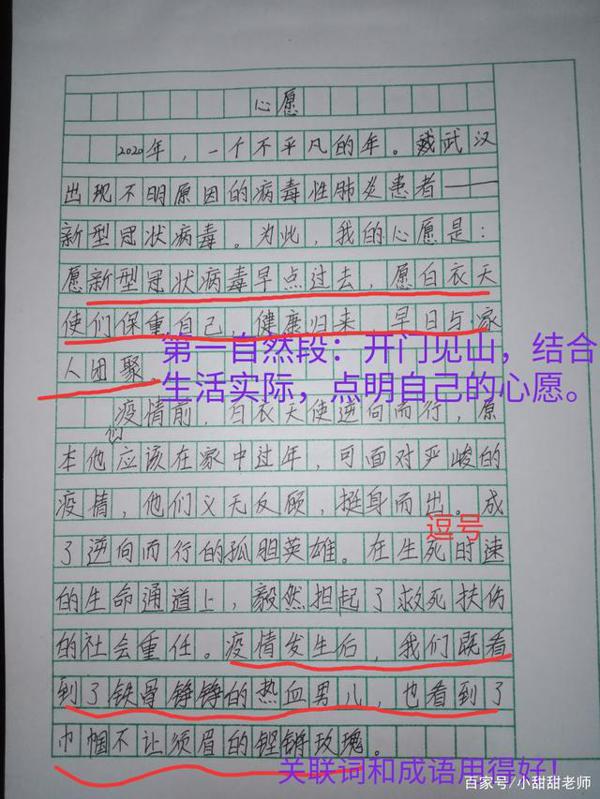 心愿
2020年，一个不平凡的年。武汉
出现不明原因的病毒性肺炎患者——
新型冠状病毒。为此，我的心愿是：
愿新型冠状病毒早点过去，愿白衣天
使们保重自己，健康归来 早日与家
人团聚
第一自然段：开门见山，结合
生活实际，点明自己的心愿。
疫情前，白衣天使逆向而行，原
本他们应该在家中过年，可面对严峻的
疫情，他们义无反顾，挺身而出。成
逗号
了逆向而行的孤胆英雄。在生死时速
的生命通道上，毅然担起了救死扶伤
的社会重任。疫情发生后，我们既看
到了铁骨铮铮的热血男儿，也看到了
巾帼不让须眉的铿锵玫瑰。
关联词和成语用得好！
百家号/小甜甜老师